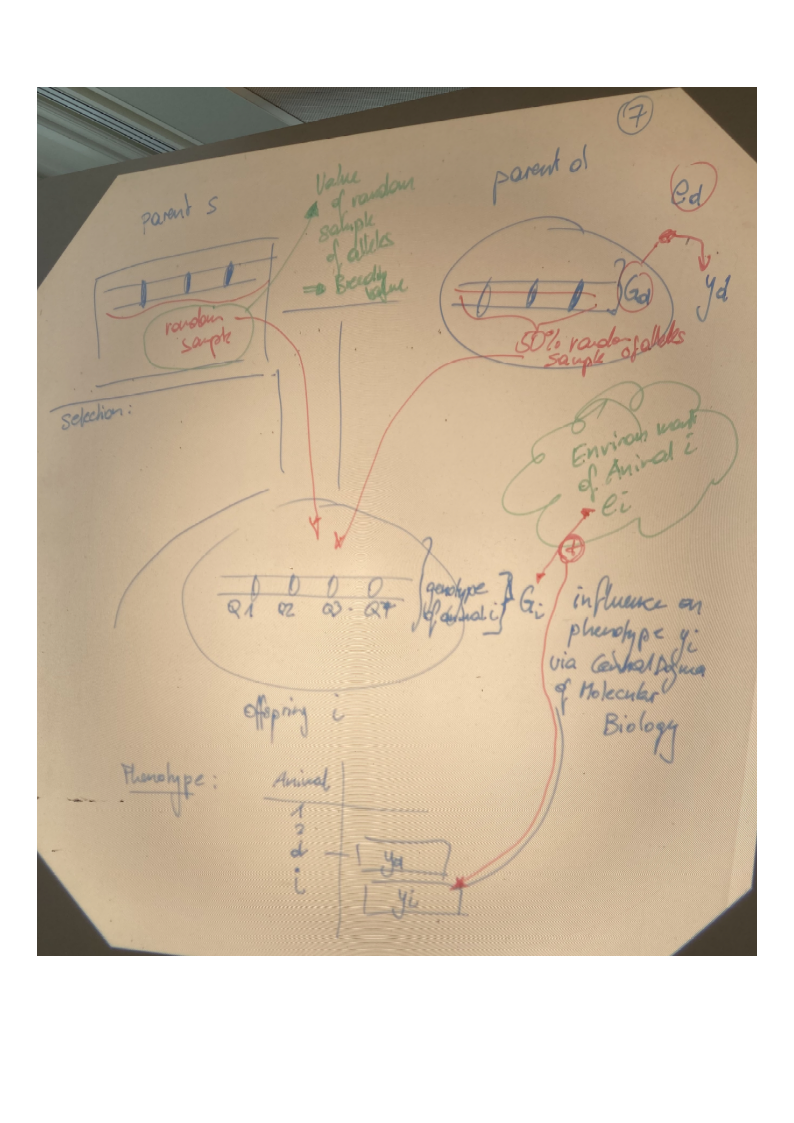 7
parent s
Value
of random
sample
of alleles
⇒ Breeding
value
parent d
ed
Gd
yd
random
sample
50% random
sample of alleles
Selection:
Environment
of Animal i
ei
+
Q1 Q2 Q3 - Q4
genotype
of animal i
Gi
influence on
phenotype yi
via Central Dogma
of Molecular
Biology
offspring i
Phenotype:
Animal
1
2
d
yd
i
yi